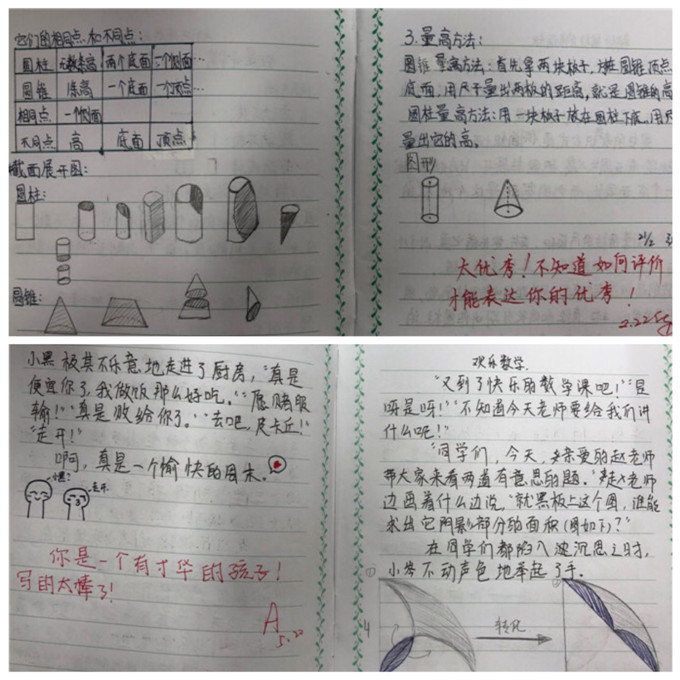 它们的相同点和不同点:
圆柱 无数条高 两个底面 一个侧面…
圆锥 1条高 一个底面 一个顶点…
相同点 一个侧面
不同点 高 底面 顶点
截面展开图:
圆柱:
圆锥:
3.量高方法:
圆锥量高方法:首先拿两块板子,
底面,用尺子量出两板的距离,就是圆锥的高
圆柱量高方法:用一块板子放在圆柱下底,用尺
量出它的高。
图形
太优秀!不知道如何评价
才能表达你的优秀!
2.22
小黑极其不乐意地走进了厨房,“真是
便宜你了,我做饭那么好吃。”“愿赌服
输!”“真是败给你了。”“去吧,皮卡丘!”
“走开!”
啊,真是一个愉快的周末。
你是一个有才华的孩子!
写的太棒了!
A
5.22
欢乐数学
“又到了快乐的数学课吧!”“是
呀是呀!”“不知道今天老师要给我们讲
什么呢!”
“同学们,今天,亲爱的赵老师
带大家来看两道有意思的题。”赵老师
边画着什么边说,“就黑板上这个图,谁能
求出它阴影部分的面积(图如下)?”
在同学们都陷入沉思之时,
小岑不动声色地举起了手。
①
转化